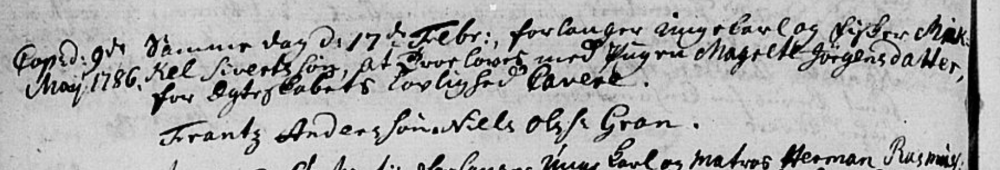 Copd: 9de Samme dag d: 17de Febr:, forlanger unge Carl og Fisker Mik-
Maij 1786. kel Sivertssøn, at troeloves med Pigen Magrete Jørgensdatter,
for Egteskabets lovlighed Cavere.
Frantz Anderssøn. Niels Olss: Gran.
forlanger Unge Carl og Matros Herman Rasmus: